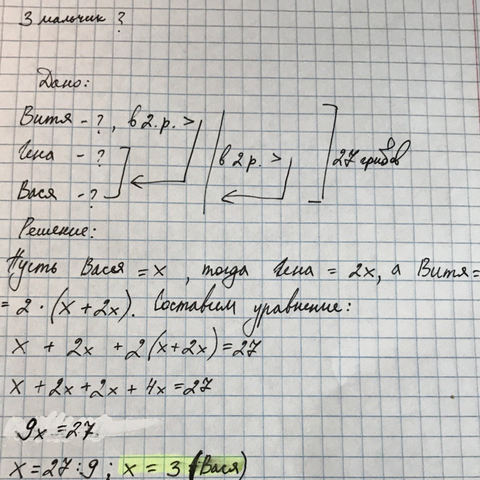 3 мальчик ?
Дано:
Витя - ? , в 2. р. >
Гена - ?
в 2 р. >
27 грибов
Вася - ?
Решение:
Пусть Вася = x , тогда Гена = 2x, а Витя =
= 2 · (x + 2x). Составим уравнение:
x + 2x + 2(x+2x) = 27
x + 2x + 2x + 4x = 27
9x = 27
x = 27 : 9 ; x = 3 (Вася)